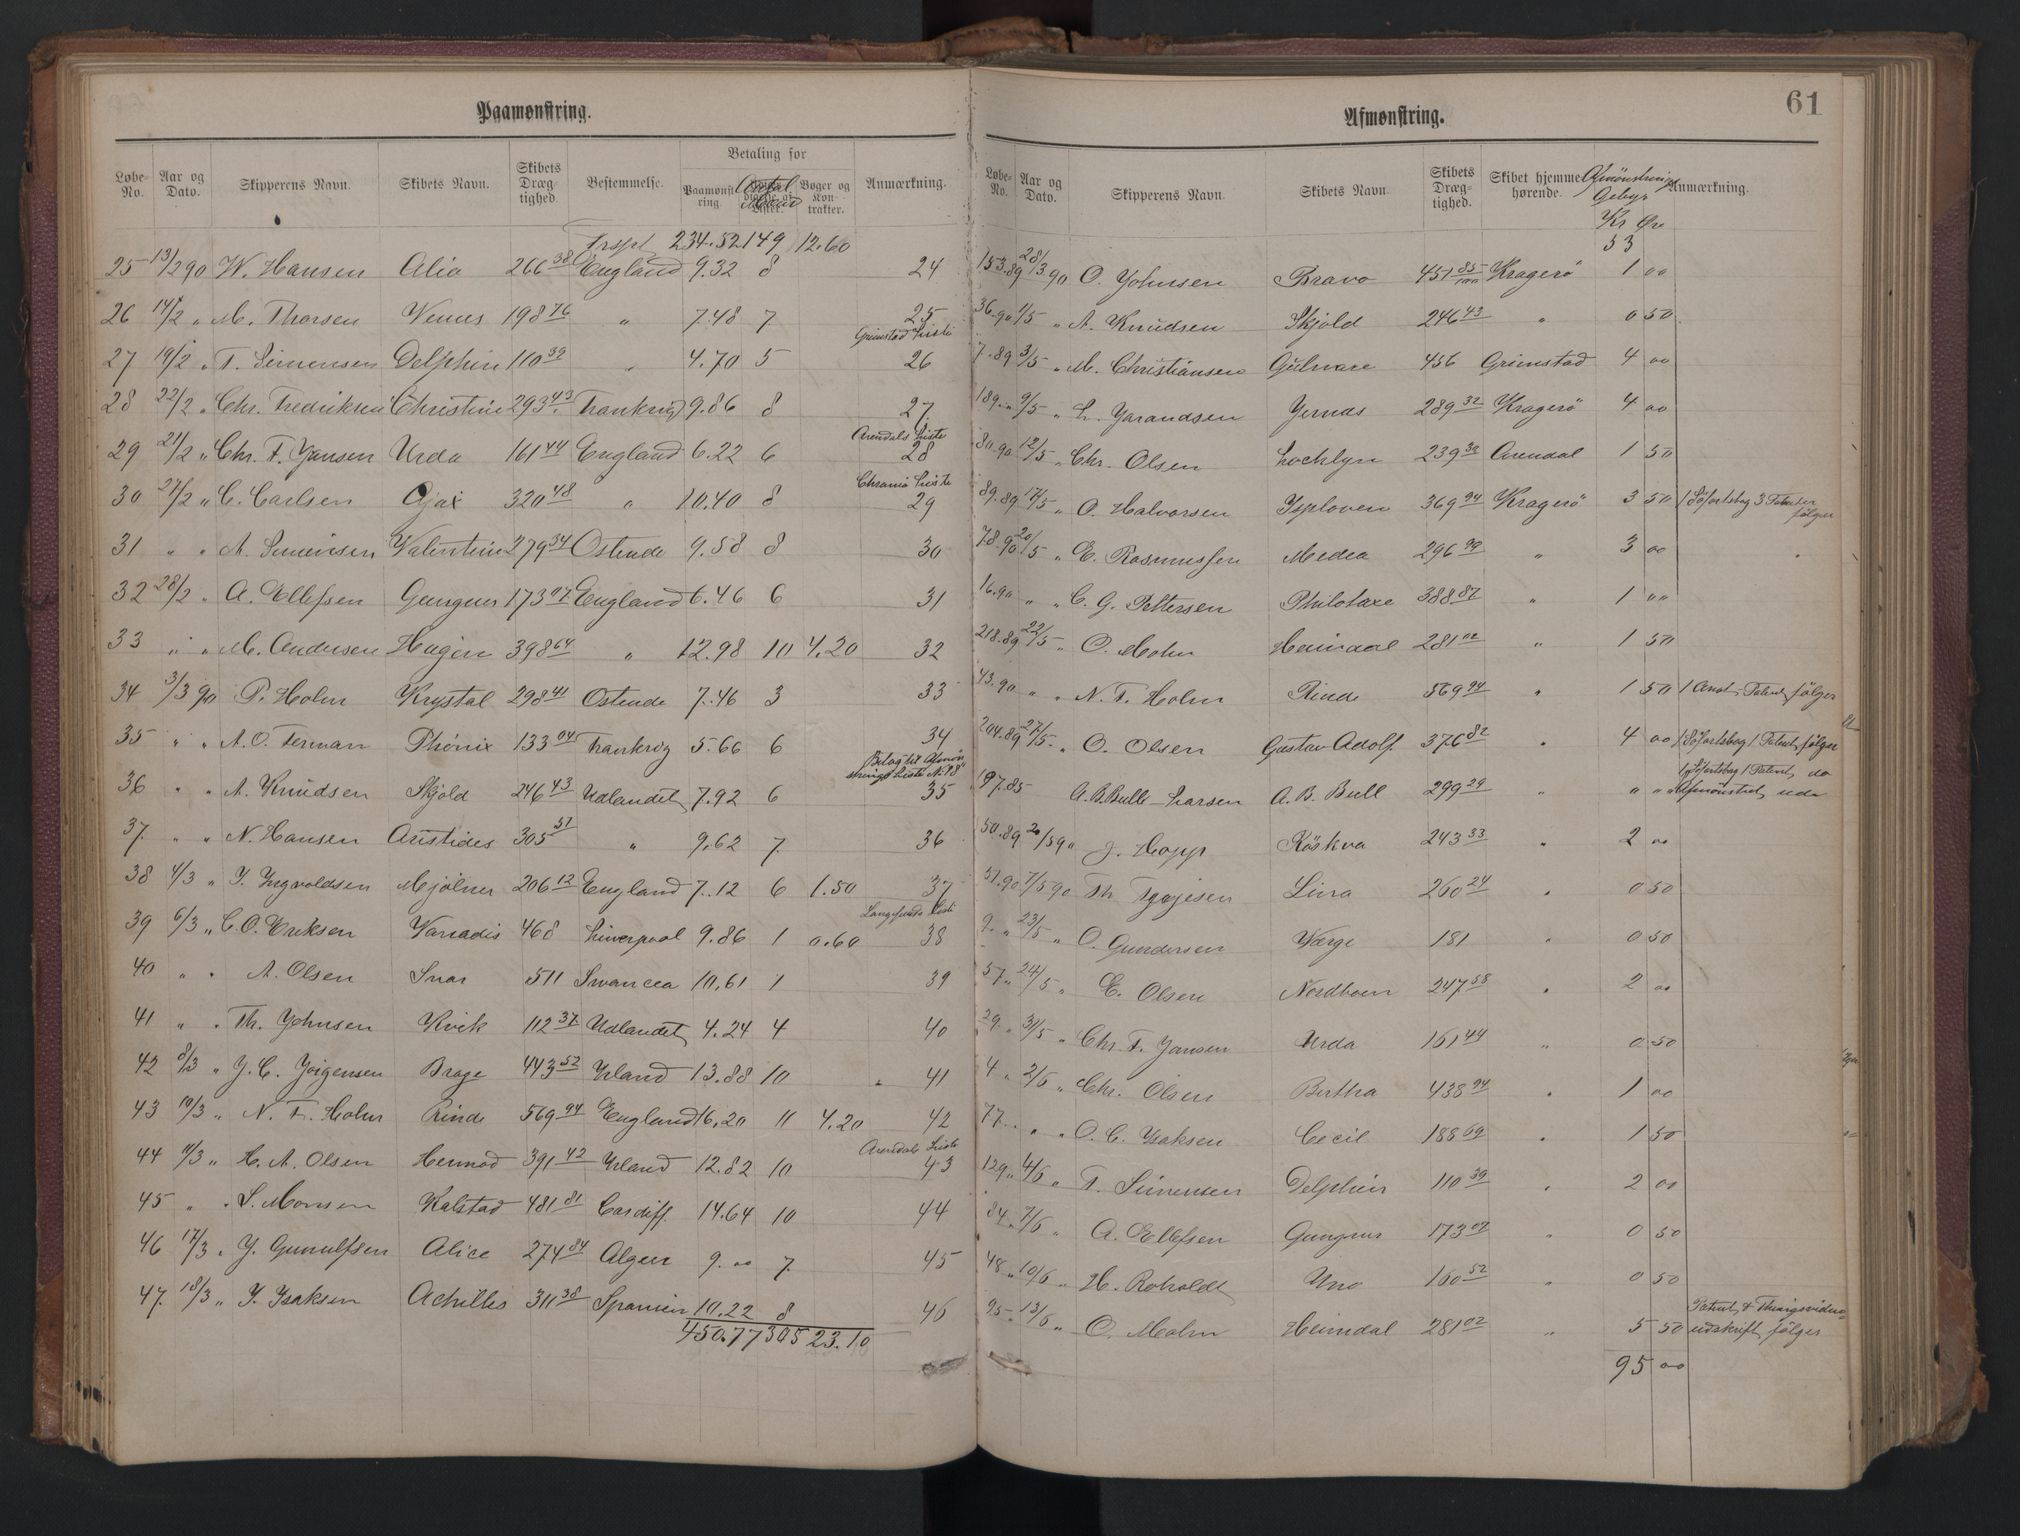 Paamønstring.
Løbe-No. Aar og Dato. Skipperens Navn. Skibets Navn. Skibets Dræg-tighed. Bestemmelse. Betaling for Paamønst-ring. Antal Mand Bøger og Kon-trakter. Anmærkning.
Trspt 234.52 149 12.60
25 13/2 90 W. Hansen Alia 266 38 England 9.32 8 24
26 14/2 " M. Thorsen Venus 198 76 " 7.48 7 25
Grimstad Liste
27 19/2 " T. Simensen Delphin 110 39 " 4.70 5 26
28 22/2 " Chr. Fredriksen Christine 293 43 Frankrig 9.86 8 27.
Arendals Liste
29 21/2 " Chr. F. Jansen Urda 161 44 England 6.22 6 28
Chrania Liste
30 27/2 " C. Carlsen Ajax 320 48 " 10.40 8 29
31 " " A. Simensen Valentine 279 34 Ostende 9.58 8 30
32 28/2 " A. Ellefsen Gungner 173 07 England 6.46 6 31
33 " " M. Andersen Hagin 398 64 " 12.98 10 4.20 32
34 3/3 90 P. Holm Krystal 298 41 Ostende 7.46 3 33
35 " " A. O. Terman Phønix 133 04 Frankrig 5.66 6 34
Bilag til Afmøn-
strings Liste N. 98
36 " " A. Knudsen Skjold 246 43 Udlandet 7.92 6 35
37. " " N. Hansen Aristides 305 51 " 9.62 7. 36
38 4/3 " J. Ingvoldsen Mjølner 206 12 England 7.12 6 1.50 37
Langesunds Liste
39 6/3 " C. O. Eriksen Vanadis 468 Liverpool 9.86 1 0.60 38
40 " " A. Olsen Snar 511 Swancea 10.61 1 39
41 " " Th. Johnsen Kvik 112 37 Udlandet 4.24 4 40
42 8/3 " J. C. Jørgensen Brage 443 52 Irland 13.88 10 " 41
43 10/3 " N. T. Holm Rinde 569 94 England 16.20 11 4.20 42
Arendals Liste
44 11/3 " H. A. Olsen Hermod 391 42 Irland 12.82 10 43
45 " " S. Monsen Kalstad 481 81 Cardiff. 14.64 10 44
46 17/3 " J. Gunulfsen Alice 274 84 Algier 9. 00 7. 45
47. 18/3 " J. Isaksen Achilles 311 38 Spanien 10.22 8 46
450.77 305 23.10
Afmønstring. 61
Løbe-No. Aar og Dato. Skipperens Navn. Skibets Navn. Skibets Dræg-tighed. Skibet hjemme-hørende. Afmønstrings Gebyr Anmærkning.
Kr Øre
53
153.89 28/3.90 O. Johnsen Bravo 451 85/100 Kragerø 1 00
36.90 1/5 " A. Knudsen Skjold 246 43 " 0 50
7.89 3/5 " M. Christiansen Gulnare 456 Grimstad 4 00
189. " 9/5 " L. Jarandsen Jernæs 289 32 Kragerø 4 00
80.90 12/5 " Chr. Olsen Lochlyn 239 32 Arendal 1 50
89.89 17/5 " O. Halvorsen Isploven 369 94 Kragerø 3 50 1 Søfartsbog 3 Patenter følger
78.90 20/5 " E. Rasmussen Medea 296 99 " 3 00
16.90 " " C. G. Pettersen Philotaxe 388 87 " 1 00
218.89 22/5 " O. Molm Heimdal 281 02 " 1 50
43.90 " " N. T. Holm Rinde 569 94 " 1 50 1 Amot. Patent følger
204.89 27/5 " O. Olsen Gustav Adolf 376 82 " 4 00 1 Søfartsbog 1 Patent følger
1 Søfartsbog 1 Patent do
197.85 A. B. Bull-Larsen A. B. Bull 299 29 " " " Afmønstret ude
50.89 20/5 90 J. Hopp Røskva 243 33 " 2 00
51.90 7/5 90 Th. Tgojesen Lina 260 24 " 0 50
9. " 23/5 " O. Gundersen Værge 181 " 0 50
57 " 24/5 " E. Olsen Nordboen 247 58 " 2 00
29. " 31/5 " Chr. F. Jansen Urda 161 44 " 0 50
4 " 2/6 " Chr. Olsen Birtha 438 94 " 1 00
77 " " " O. C. Isaksen Cecil 188 69 " 1 50
129 " 4/6 " T. Simensen Delphin 110 39 " 2 00
84 " 7/6 " A. Ellefsen Gungner 173 07 " 0 50
48 " 10/6 " H. Roholdt Uno 160 52 " 0 50
Patent & Thingsvidne-
95 " 13/6 " O. Molm Heimdal 281 02 " 5 50 udskrift følger
95 00